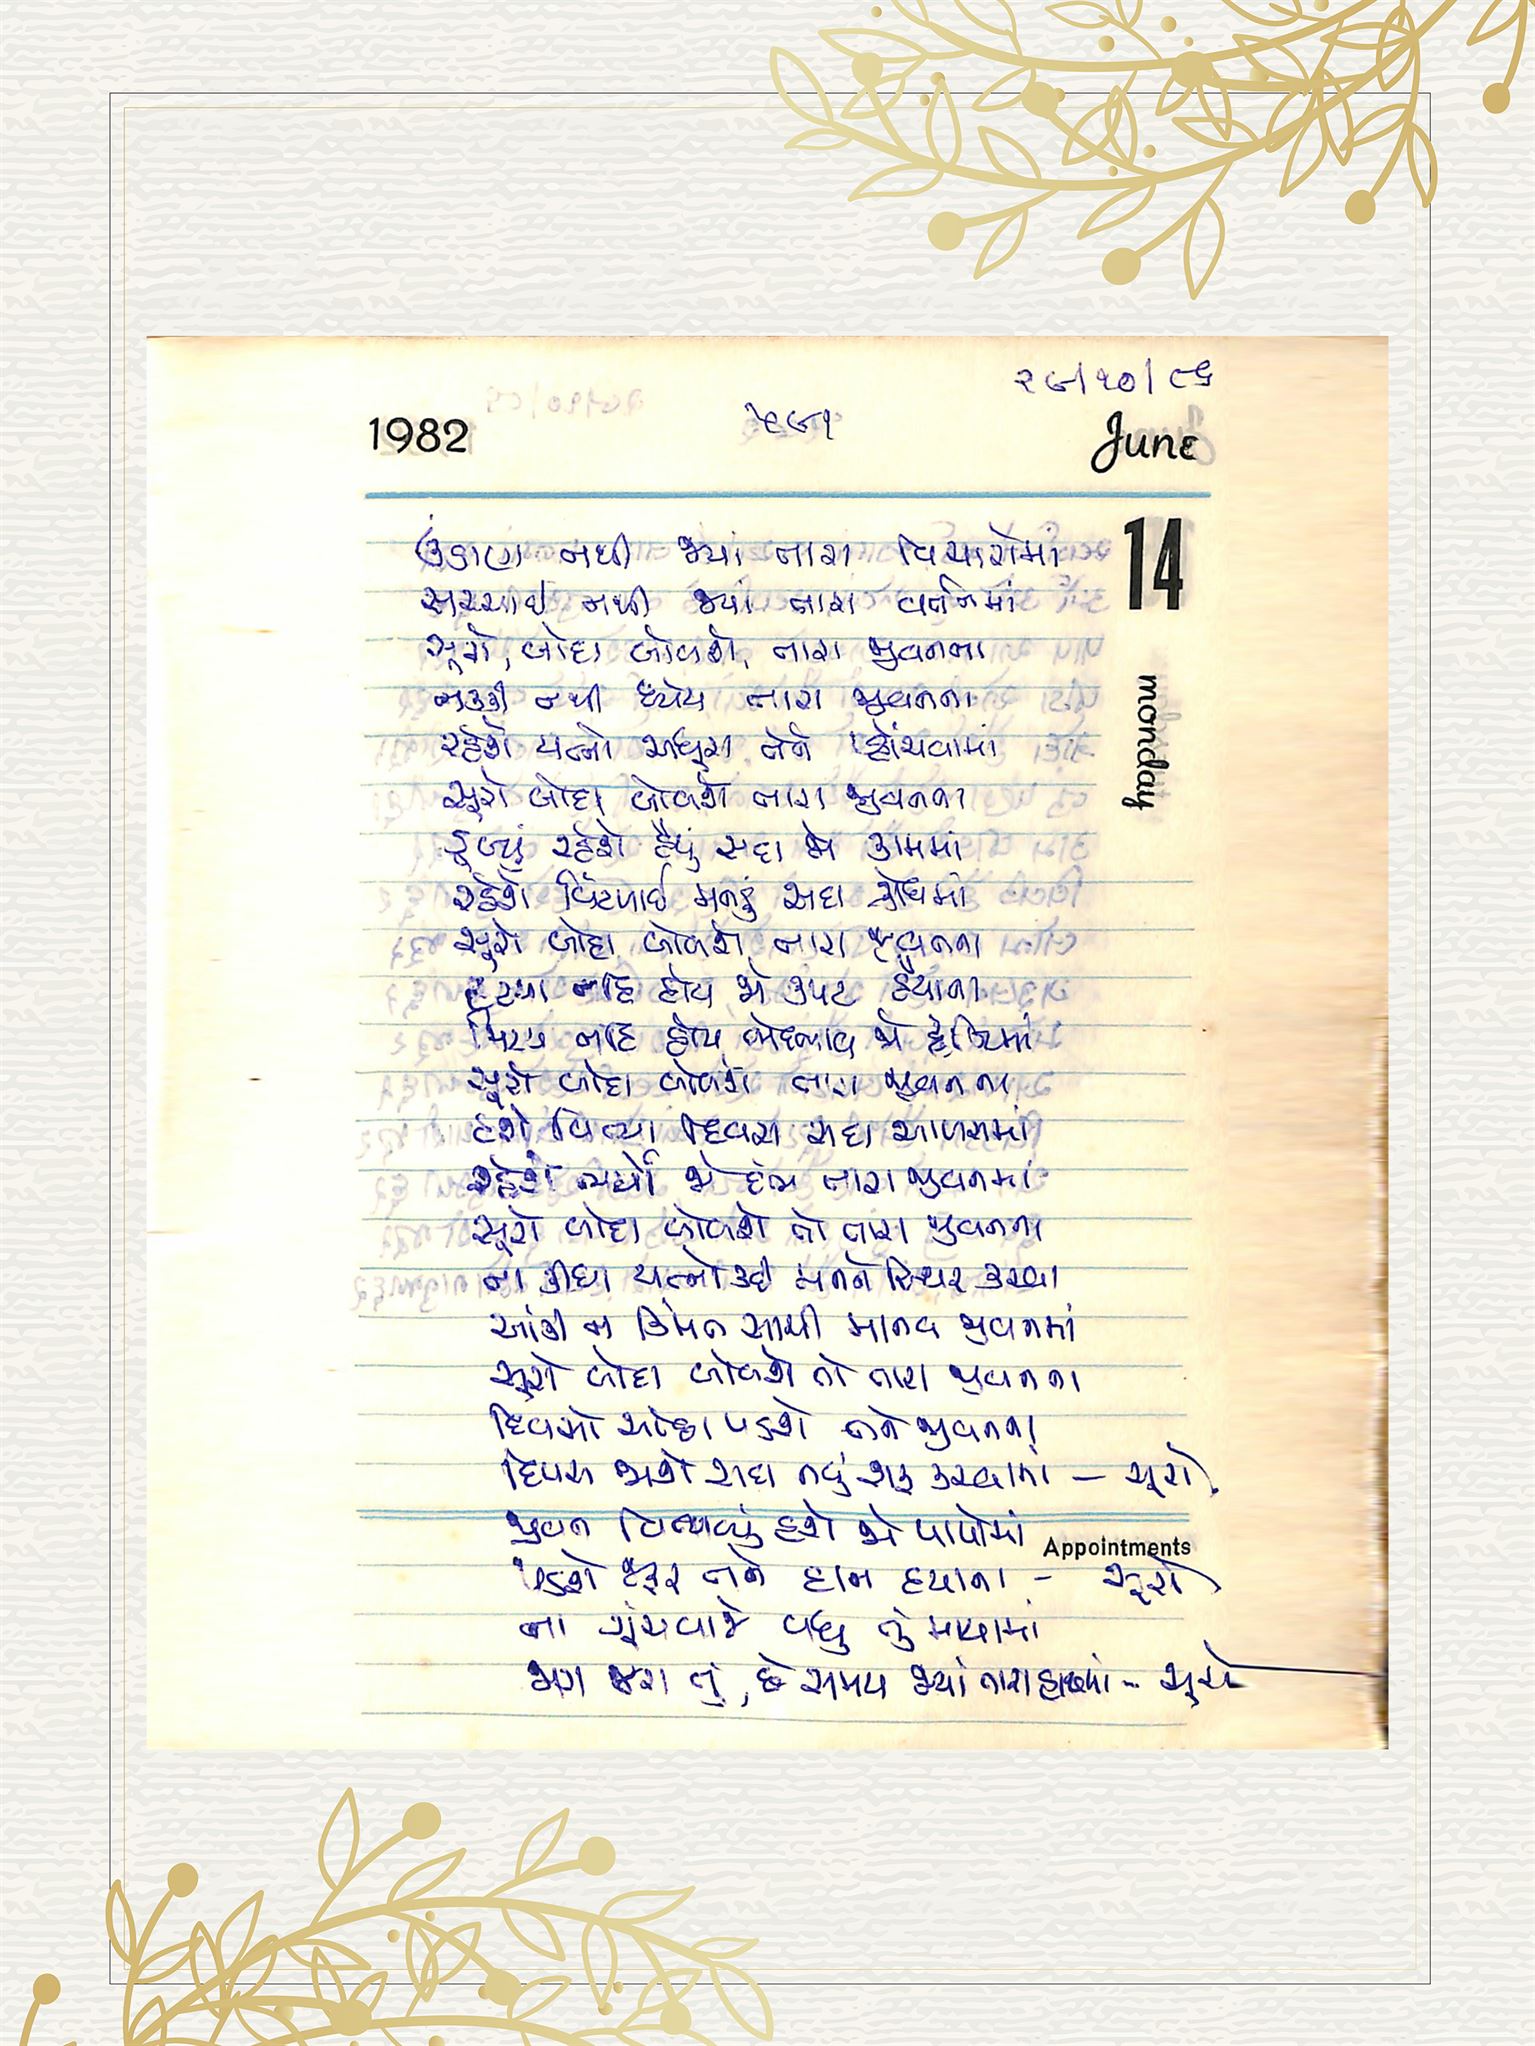 ૨૯/૧૦/૮૬
1982
June
14
monday
ઉંડાણ નથી જ્યાં તારા વિચારોમાં
સચ્ચાઈ નથી જ્યાં તારા વર્તનમાં
સૂરો, બોદા બોલશે, તારા જીવનના
નક્કી નથી ધ્યેય તારા જીવનના
રહેશે યત્નો અધૂરા તેને પ્હોંચવામાં
સૂરો બોદા બોલશે તારા જીવનના
ડૂબ્યું રહેશે હૈયું સદા જો કામમાં
રહેશે વિંટળાઈ મનડું સદા ક્રોધમાં
સૂરો બોદા બોલશે તારા જીવનના
હટયા નહિ હોય જો કપટ હૈયાના
મિટયા નહિ હોય ભેદભાવ જો દ્રષ્ટિમાં
સૂરો બોદા બોલશે તારા જીવનના
હશે વિત્યા દિવસ સદા આળસમાં
રહેશે ભર્યો જો દંભ તારા જીવનમાં
સૂરો બોદા બોલશે તો તારા જીવનના
ના કીધા યત્નો કદી મનને સ્થિર કરવા
આંકી ન કિંમત સાચી માનવ જીવનમાં
સૂરો બોદા બોલશે તો તારા જીવનના
દિવસો ઓછા પડશે તને જીવનના
દિવસ જાશે સદા નવું શરૂ કરવામાં – સૂરો
જીવન વિતાવ્યું હશે જો પાપોમાં
Appointments
પડશે જરૂર તને દાન દયાના – સૂરો
ના ગૂંચવાજે વધુ તું માયામાં
જાગ જરા તું, છે સમય જ્યાં તારા હાથમાં – સૂરો